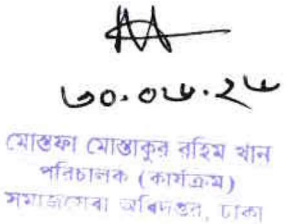 ৩০.০৬.২৬
মোস্তফা মোস্তাকুর রহিম খান
পরিচালক (কার্যক্রম)
সমাজসেবা অধিদপ্তর, ঢাকা